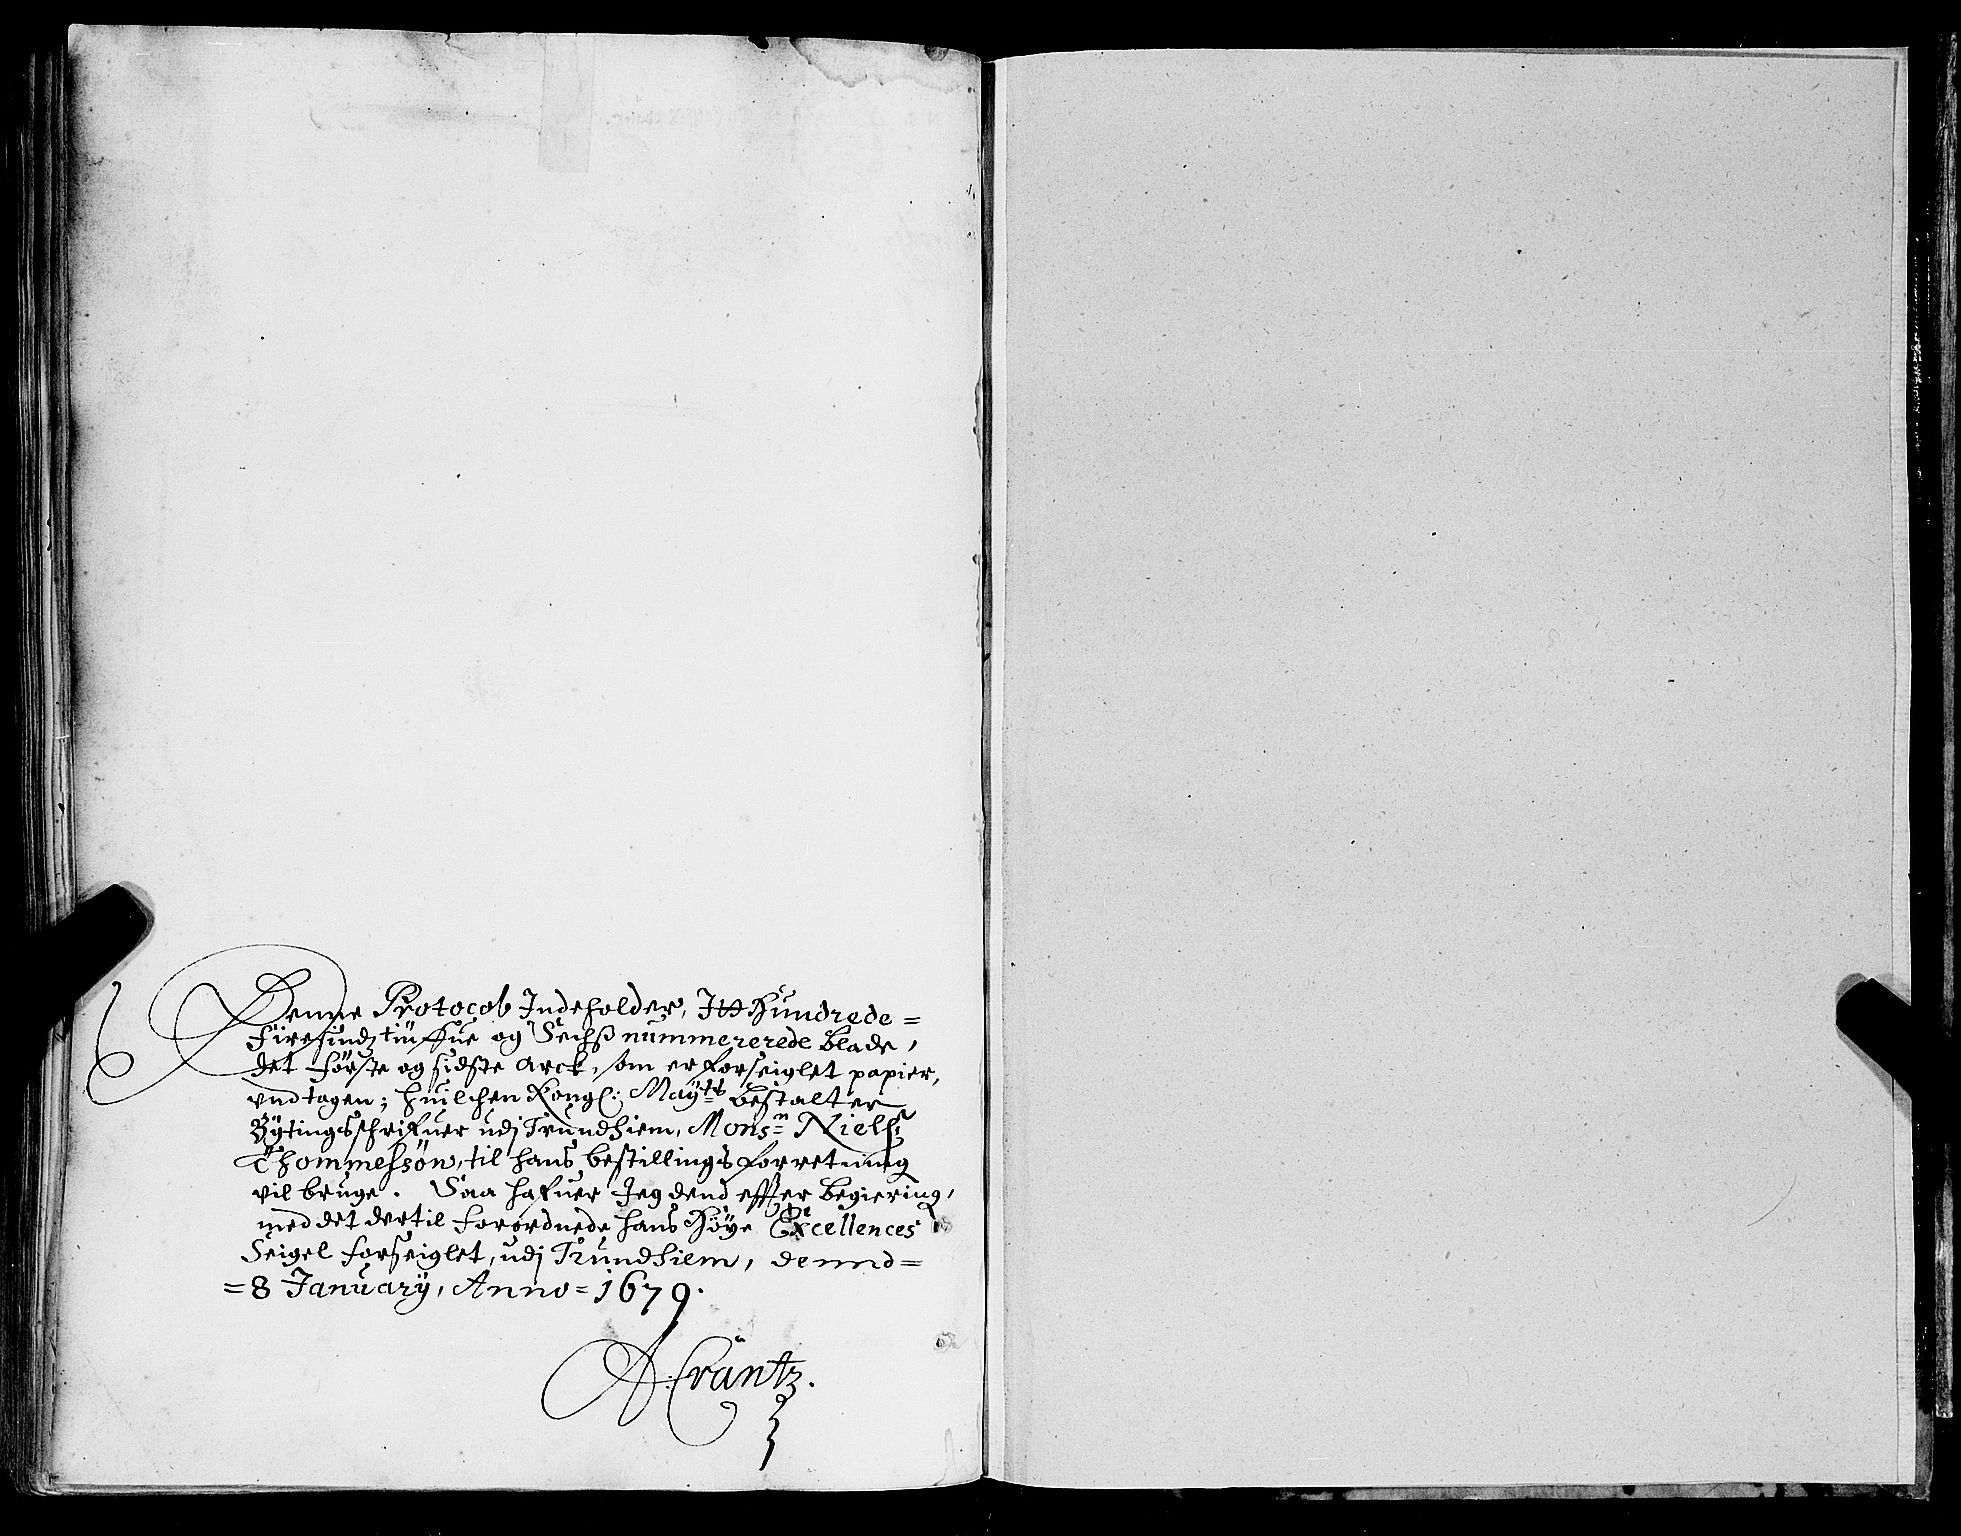 Denne Protocol Indeholder, Itt Hundrede =
Firesindztiufue og Sechs nummererede blade,
det første og sidste Arck, som er forseiglet papier,
vndtagen; huilchen Kongl: Mayts bestalter
Bytingsschrifuer udj Trundhiem, Monsr Niels
Thommessøn, til hans bestillings forretning
vil bruge. Saa hafuer Jeg dend effter begiering,
med det dertil forordnede hans Høye Excellences
Seigel forseiglet, udj Trundhiem, dennd =
= 8 January, Anno = 1679.
A: Crantz.